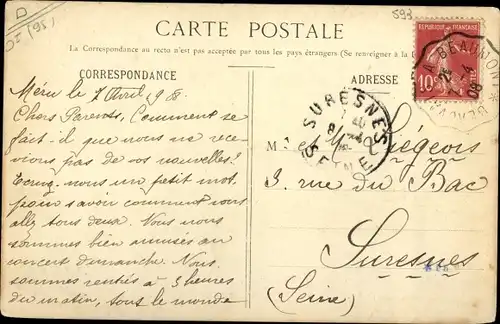 D
D5 (95)
593
CARTE POSTALE
La Correspondance au recto n'est pas acceptée par tous les pays étrangers (Se renseigner à la
CORRESPONDANCE
ADRESSE
REPUBLIQUE FRANÇAISE
10
BEAUMO
28-4
08
SURESNES
8 4
SEINE
Méru le 7 Avril 908
Chers Parents, Comment se
fait-il que nous ne rece
vions pas de vos nouvelles?
Ecrivez-nous un petit mot,
pour savoir comment vous
allez tous deux. Nous nous
sommes bien amusés au
concert dimanche. Nous
sommes rentrés à 3 heures
du matin, tout le monde
M. et Liégeois
3, rue du Bac
Suresnes
(Seine)